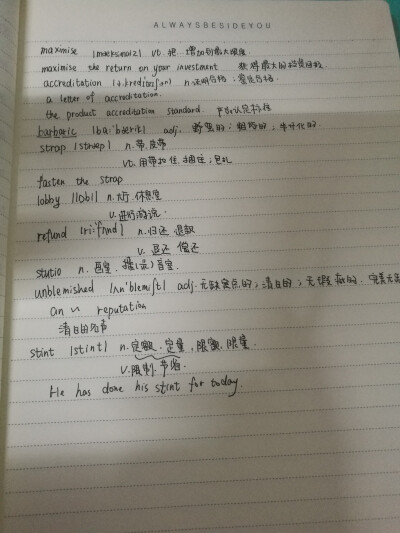 ALWAYSBESIDEYOU
maximise |mæksmaiz| vt. 把 增加到最大限度
maximise the return on your investment 获得最大的投资回报
accreditation n. 证明合格;鉴定合格.
a letter of accreditation.
the product accreditation standard. 产品认定标准
barbaric |ba:'bærik| adj. 野蛮的;粗鲁的;半开化的.
strap |stræp| n. 带.皮带
vt. 用带扣住.捆住;包扎
fasten the strap
lobby |lɔbi| n. 大厅.休息室
v. 进行游说.
refund n. 归还.退款
v. 退还 偿还
studio n. 画室. 播(音)音室.
unblemished |ʌn'blemiʃt| adj. 无缺点的;清白的;无瑕疵的.
an ~ reputation
清白的名声
stint |stint| n. 定额.定量,限额.限量.
v. 限制.节省.
He has done his stint for today.